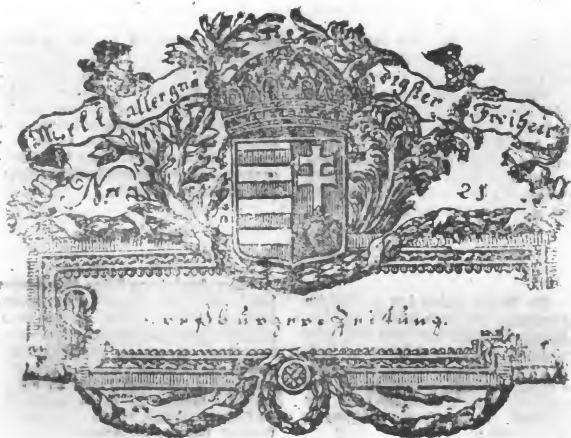 Mit allergnä digster Freiheit
Preßburger Zeitung.